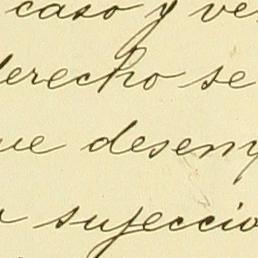 caso y ve
derecho se
ue desem
sujeccio